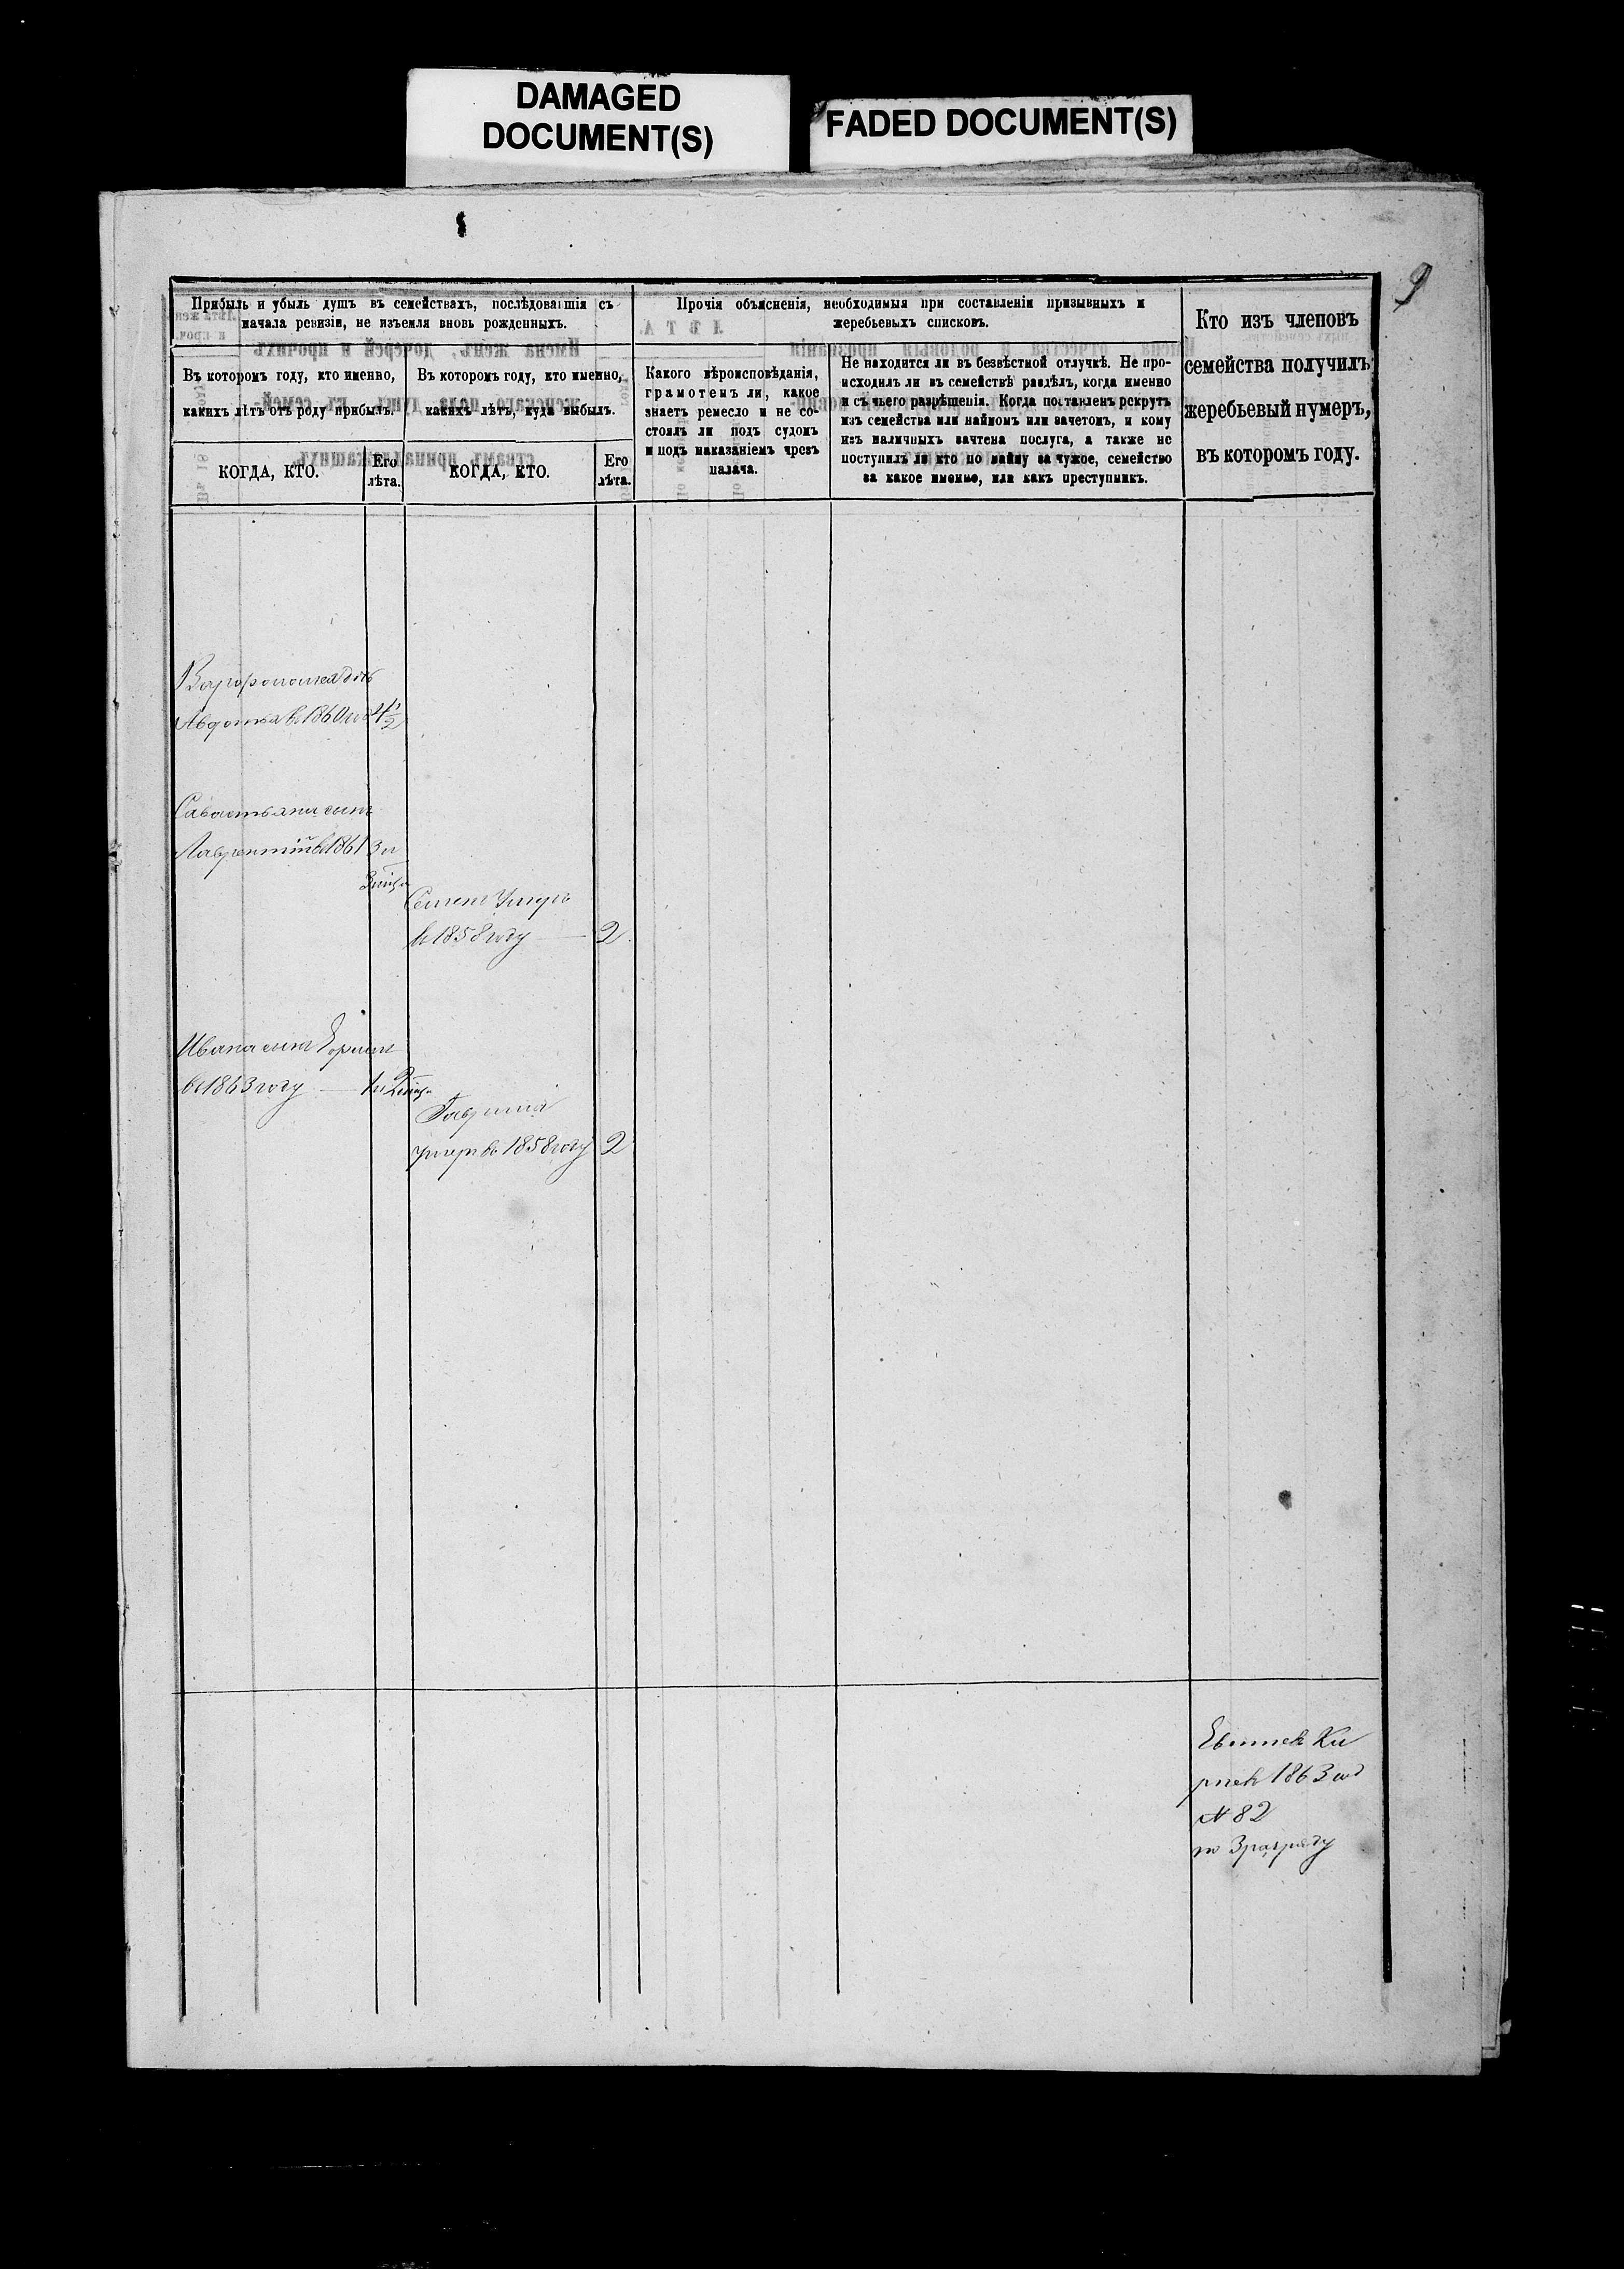 DAMAGED
DOCUMENT(S)
FADED DOCUMENT(S)
9
Прибыль и убыль душъ въ семействахъ, послѣдовавшія съ
начала ревизіи, не изъемля вновь рожденныхъ.
Прочія объясненія, необходимыя при составленіи призывныхъ и
жеребьевыхъ списковъ.
Кто изъ членовъ
семейства получилъ
жеребьевый нумеръ,
въ которомъ году.
Въ которомъ году, кто именно,
какихъ лѣтъ отъ роду прибылъ.
Въ которомъ году, кто именно,
какихъ лѣтъ, куда выбылъ.
Какого вѣроисповѣданія,
грамотенъ ли, какое
знаетъ ремесло и не со-
стоялъ ли подъ судомъ
и подъ наказаніемъ чрезъ
палача.
Не находится ли въ безвѣстной отлучкѣ. Не про-
исходилъ ли въ семействѣ раздѣлъ, когда именно
и съ чьего разрѣшенія. Когда поставленъ рекрутъ
изъ семейства или наймомъ или зачетомъ, и кому
изъ наличныхъ зачтена послуга, а также не
поступилъ ли кто по найму за чужое, семейство
за какое именно, или какъ преступникъ.
КОГДА, КТО.
Его
лѣта.
КОГДА, КТО.
Его
лѣта.
Авдотья въ 1860 год 4½
Савостьяна сынъ
Лаврентій въ 1861 3 и
Семенъ Умеръ
въ 1858 году 2
Ивана сынъ
въ 1863 году 1 и 2
Гаврила
умеръ въ 1858 году 2
1863 год
№ 82
по 3 разряду